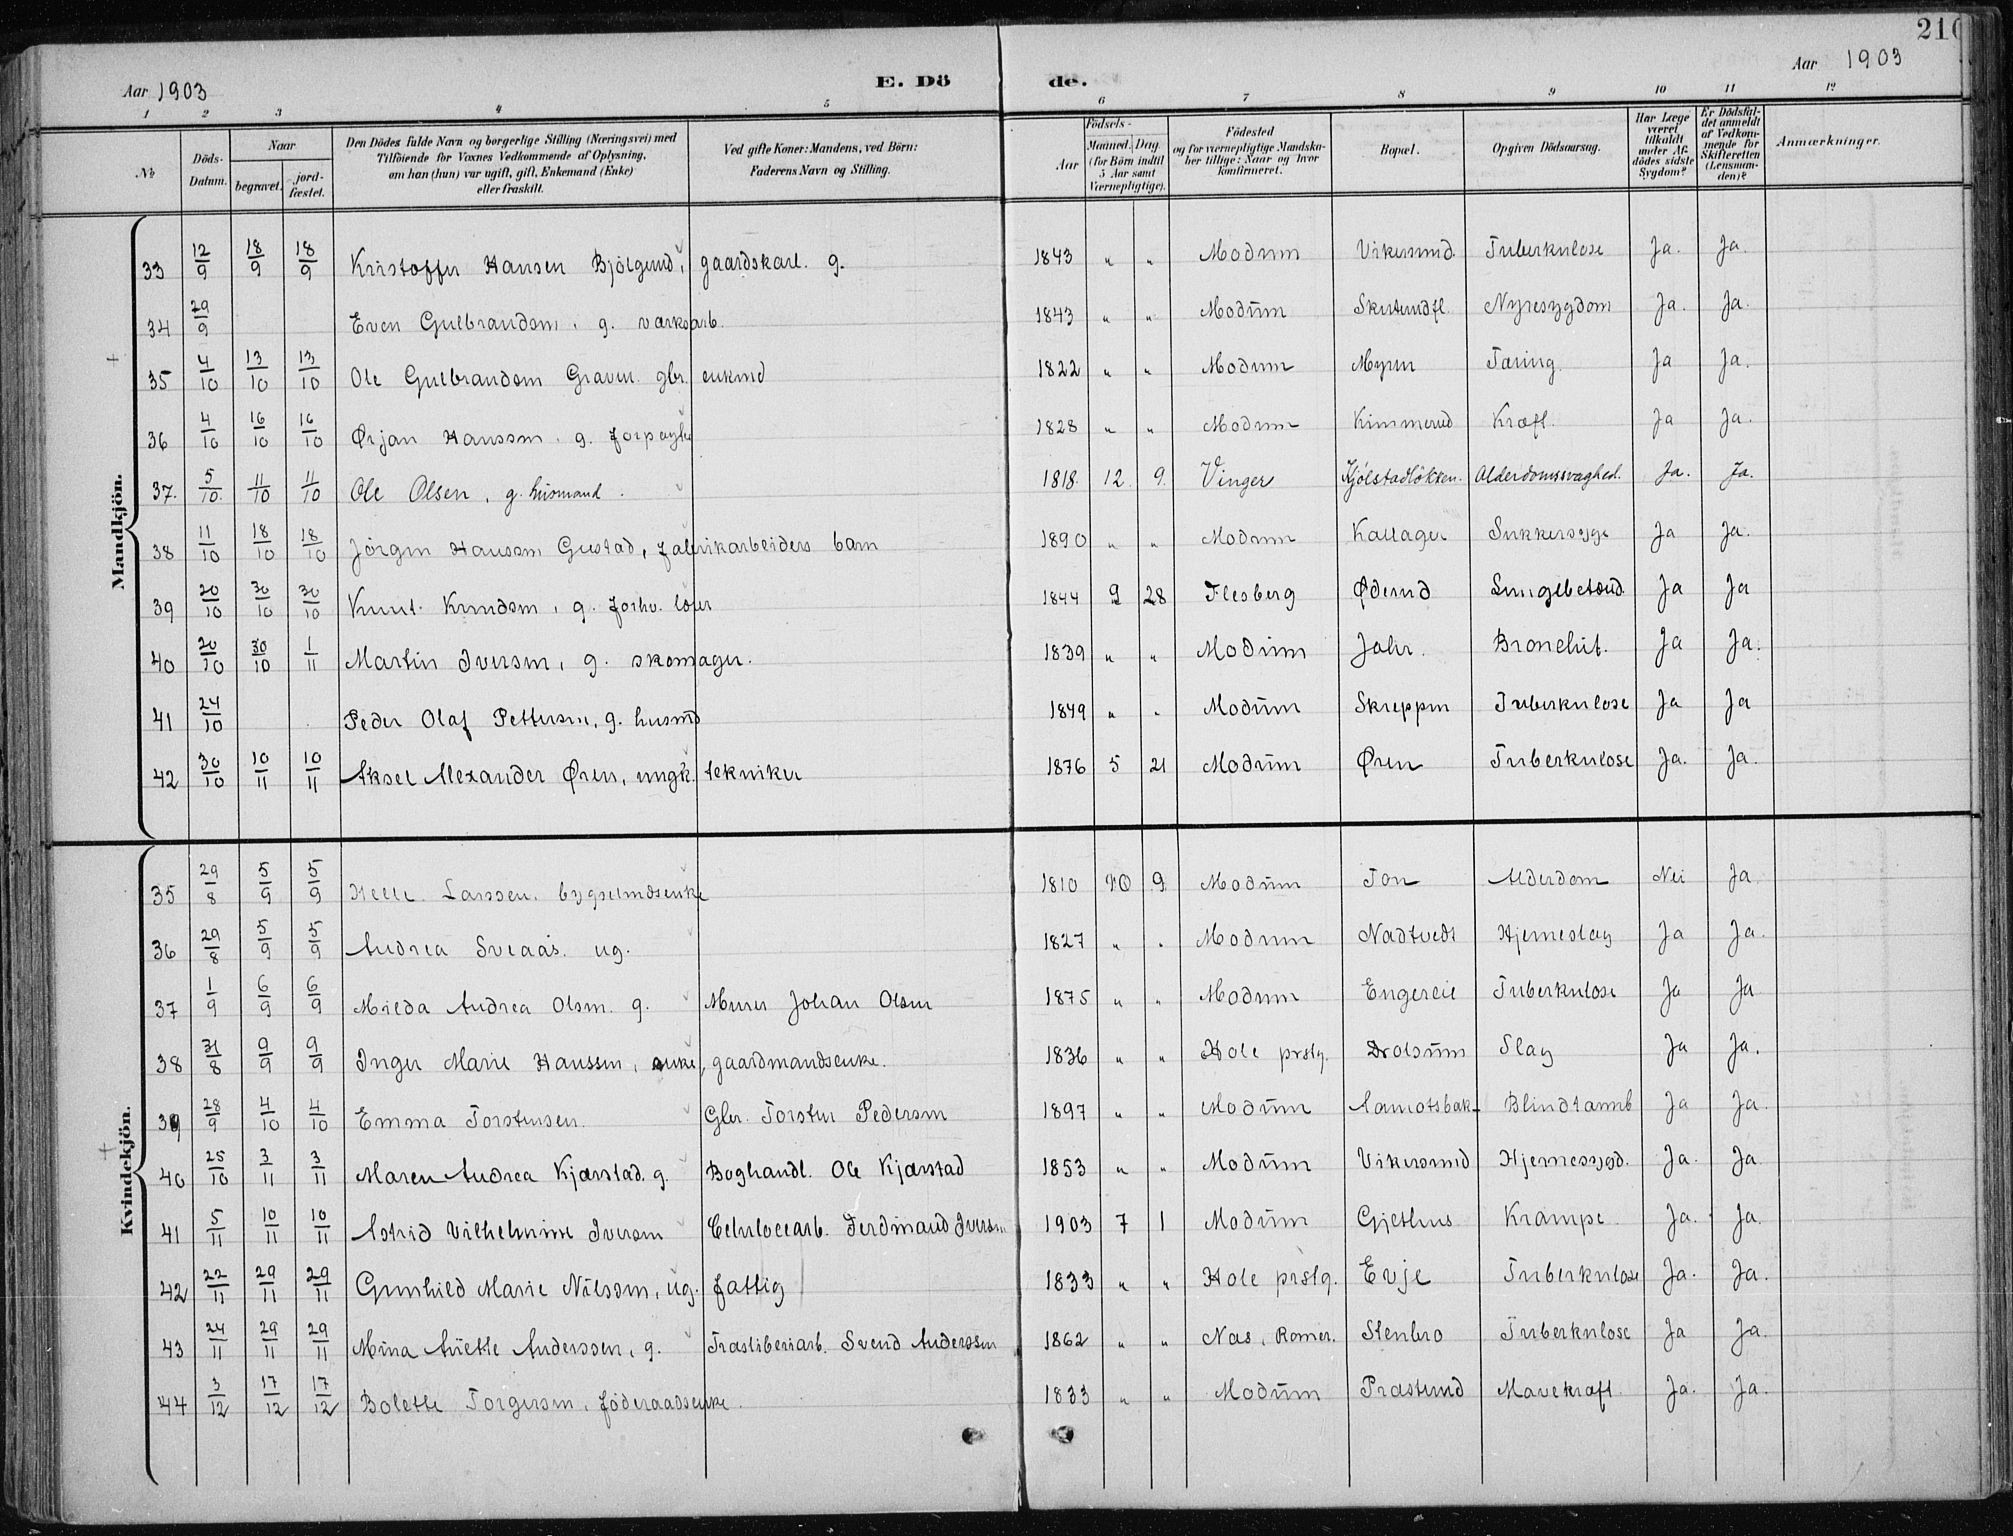 216
Aar 1903 E. Dö de. Aar 1903
1 2 3 4 5 6 7 8 9 10 11 12
No Döds-Datum. Naar begravet. jord-fæstet. Den Dödes fulde Navn og borgerlige Stilling (Næringsvei) med Tilföiende for Voxnes Vedkommende af Oplysning, om han (hun) var ugift, gift, Enkemand (Enke) eller fraskilt. Ved gifte Koner: Mandens, ved Börn: Faderens Navn og Stilling. Födsels- Aar Maaned. Dag. (for Börn indtil 5 Aar samt Værnepligtige). Födested og for værnepligtige Mandska-ber tillige: Naar og hvor konfirmeret. Bopæl. Opgiven Dödsaarsag. Har Læge været tilkaldt under Af-dödes sidste Sygdom? Er Dödsfal-det anmeldt af Vedkom-mende for Skifteretten (Lensman-den)? Anmærkninger.
Mandkjön.
33 12/9 18/9 18/9 Kristoffer Hansen Bjölgerud, gaardskarl. g. 1843 " " Modum Vikersund. Tuberkulose Ja. Ja.
34 29/9 Even Gulbrandsen, g. værksarb. 1843 " " Modum Skutundfl. Nyresygdom Ja. Ja.
35 4/10 13/10 13/10 Ole Gulbrandsen Graven. gbr. enkmd 1822 " " Modum Myren Tæring Ja Ja.
36 4/10 16/10 16/10 Ørjan Hanssen, g. forpagter 1828 " " Modum Kimmerud Kræft. Ja Ja.
37. 5/10 11/10 11/10 Ole Olsen, g. husmand. 1818 12 9 Vinger Kjølstadløkken. Alderdomssvaghed. Ja. Ja.
38 11/10 18/10 18/10 Jörgen Hanssen Gustad, fabrikarbeiders barn 1890 " " Modum Kallager Sukkersyge Ja Ja.
39 20/10 30/10 30/10 Knut Knudsen, g. forhv. lærer 1844 9 28 Flesberg Øderud Lungebetænd. Ja Ja
40 20/10 30/10 1/11 Martin Iversen, g. skomager. 1839 " " Modum Jahr. Bronchit. Ja Ja.
41 24/10 Peder Olaf Pettersen, g. husmd 1849 " " Modum Skreppen Tuberkulose Ja Ja
42 30/10 10/11 10/11 Aksel Alexander Øren, ungk. tekniker 1876 5 21 Modum Øren Tuberkulose Ja. Ja.
Kvindekjön.
35 29/8 5/9 5/9 Helle Larssen, bygselmdsenke 1810 10 9 Modum Ton Alderdom Nei Ja
36 29/8 5/9 5/9 Andrea Sveaas. ug. 1827 " " Modum Nadtvedt Hjerneslag Ja Ja.
37 1/9 6/9 6/9 Milda Andrea Olsen. g. Murer Johan Olsen 1875 " " Modum Engereie Tuberkulose Ja Ja
38 31/8 9/9 9/9 Inger Marie Hanssen, enke, gaardmandsenke. 1836 " " Hole prstg. Drolsum Slag Ja Ja.
39 28/9 4/10 4/10 Emma Torstensen. Gbr. Torsten Pedersen 1897 " " Modum Aamotsbak. Blindtarmb Ja Ja.
40 25/10 3/11 3/11 Maren Andrea Kjærstad. g. Boghandl. Ole Kjærstad 1853 " " Modum Vikersund Hjernesygd. Ja. Ja.
41 5/11 10/11 10/11 Astrid Vilhelmine Iversen Celulocearb. Ferdinand Iversen 1903 7 1 Modum Gjethus Krampe Ja. Ja.
42 22/11 29/11 29/11 Gunhild Marie Nilssen, ug. fattig 1833 " " Hole prstg. Evje Tuberkulose Ja. Ja.
43 24/11 29/11 29/11 Mina Anette Anderssen, g. Træsliberiarb. Svend Anderssen 1862 " " Næs, Romer. Stenbro Tuberkulose Ja Ja.
44 3/12 17/12 17/12 Bolette Torgersen, föderaadsenke. 1833 " " Modum Præsterud Mavekræft. Ja. Ja.